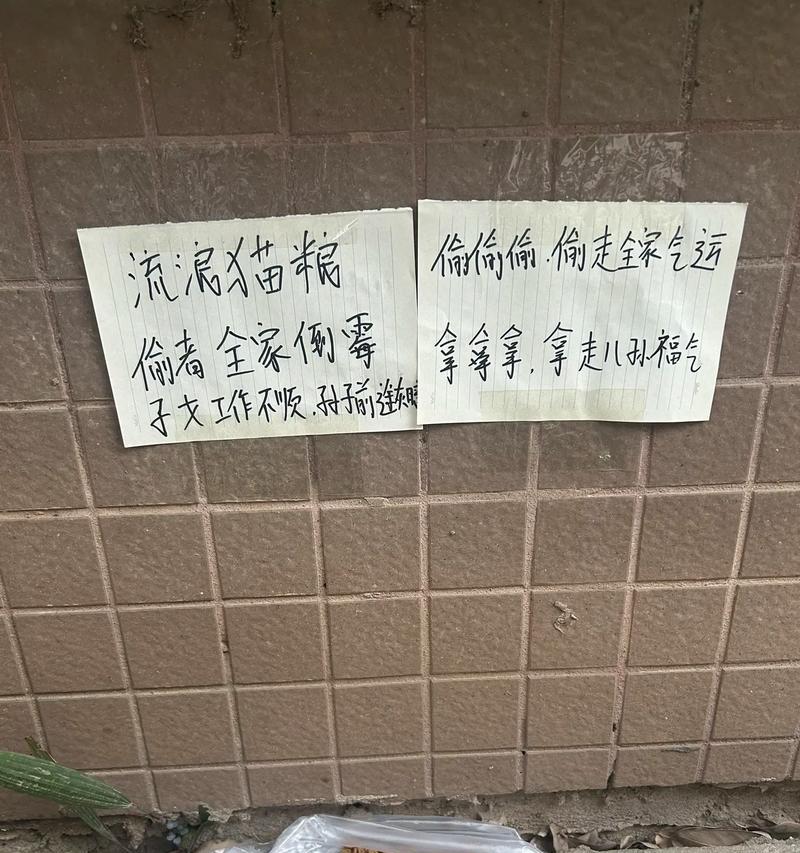 流浪猫粮
偷者 全家倒霉
子女工作不顺.孙子前途灰暗
偷偷偷.偷走全家气运
拿拿拿,拿走儿孙福气